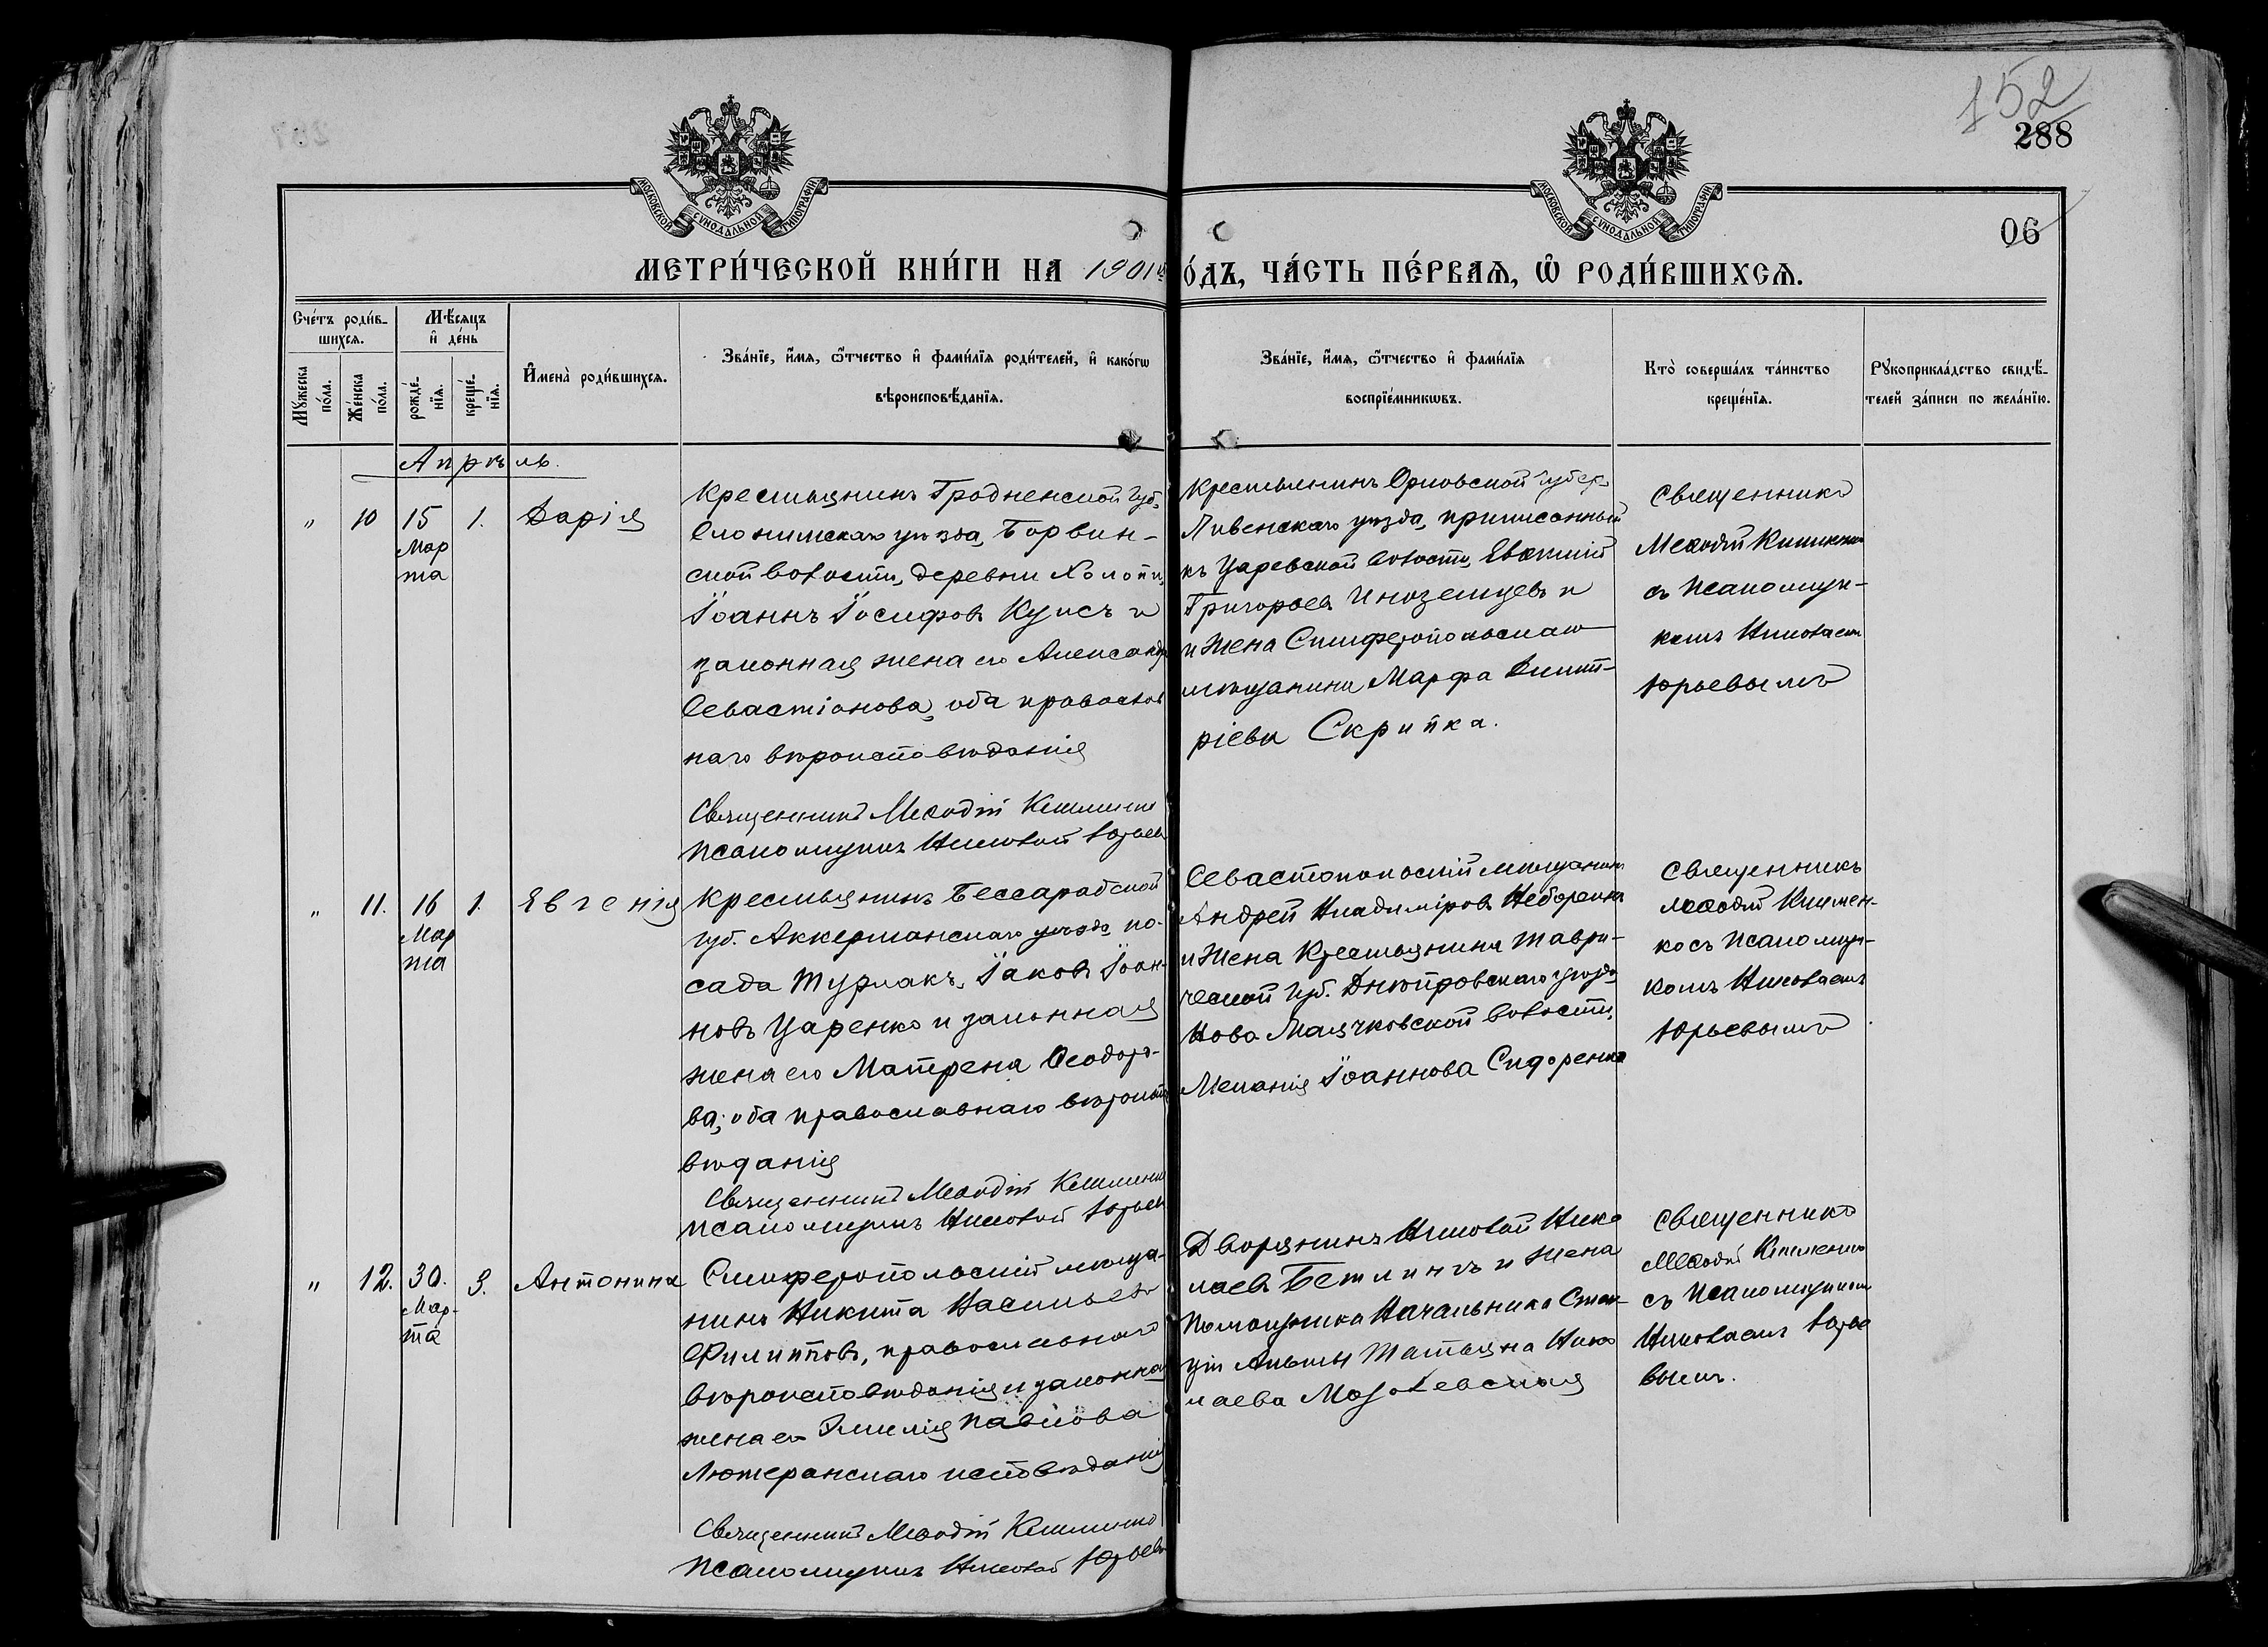 152
288
МОСКОВСКОЙ СУНОДАЛЬНОЙ ТИПОГРАФІИ
МОСКОВСКОЙ СУНОДАЛЬНОЙ ТИПОГРАФІИ
06
МЕТРИ́ЧЕСКОЙ КНИ́ГИ НА 1901й
О́ДЪ, ЧА́СТЬ ПЕ́РВАѦ, Ѡ҆ РОДИ́ВШИХСѦ.
Сче́тъ роди́в-
шихсѧ.
Мꙋ́жеска по́ла.
Же́нска по́ла.
Мѣ́сѧцъ
и҆ де́нь
рожде́-
нїѧ.
креще́-
нїѧ.
И҆мена̀ роди́вшихсѧ.
Зва́нїе, и҆́мѧ, ѻ҆́тчество и҆ фами́лїѧ роди́телей, и҆ како́гѡ
вѣроисповѣ́данїѧ.
Зва́нїе, и҆́мѧ, ѻ҆́тчество и҆ фами́лїѧ
воспрїе́мникѡвъ.
Кто̀ соверша́лъ та́инство
креще́нїѧ.
Рꙋкоприкла́дство свидѣ́-
телей за́писи по жела́нїю.
Апрѣль.
" 10 15 1. Дарія
Мар
та
Крестьянинъ Гродненской губ.
Слонимскаго уѣзда,
ской волости, деревни
Іоаннъ Іосифовъ Кунсъ и
законная жена его Александра
Севастіанова, оба православ
наго вѣроисповѣданія
Священникъ Меѳодій Клименко
Псаломщикъ Николай Юрьевъ
Крестьянинъ Орловской губер.
Ливенскаго уѣзда, приписанный
къ Царевской волости,
Григорьевъ Иноземцевъ и
и жена Симферопольскаго
мѣщанина Марфа Димит-
ріева Скрипка.
Священникъ
Меѳодій Клименко
съ Псаломщи-
комъ Николаемъ
Юрьевымъ
" 11. 16 1. Евгенія
Мар
та
Крестьянинъ Бессарабской
губ. Аккерманскаго уѣзда по-
сада Турлакъ, Іаковъ Іоан-
новъ Царенко и законная
жена его Матрена Ѳеодоро-
ва; оба православнаго вѣроиспо
вѣданія
Священникъ Меѳодій Клименко
Псаломщикъ Николай Юрьевъ
Севастопольскій мѣщанинъ
Андрей Владиміровъ
и жена Крестьянина Таври-
ческой губ. Днѣпровскаго уѣзда
Ново Маячковской волости,
Меланія Іоаннова Сидоренко
Священникъ
Меѳодій Климен-
ко съ Псаломщи-
комъ Николаемъ
Юрьевымъ
" 12. 30. 3. Антонина
Мар-
та
Симферопольскій мѣща-
нинъ Никита Васильевъ
Филипповъ, православнаго
вѣроисповѣданія и законная
жена его Эмилія Павлова
Лютеранскаго исповѣданія
Священникъ Меѳодій Клименко
Псаломщикъ Николай Юрьевъ
Дворянинъ Николай Нико
лаевъ Бетлингъ и жена
Помощника Начальника Стан-
ціи Альмы Татьяна Нико
лаева
Священникъ
Меѳодій Клименко
съ Псаломщикомъ
Николаемъ Юрье
вымъ.